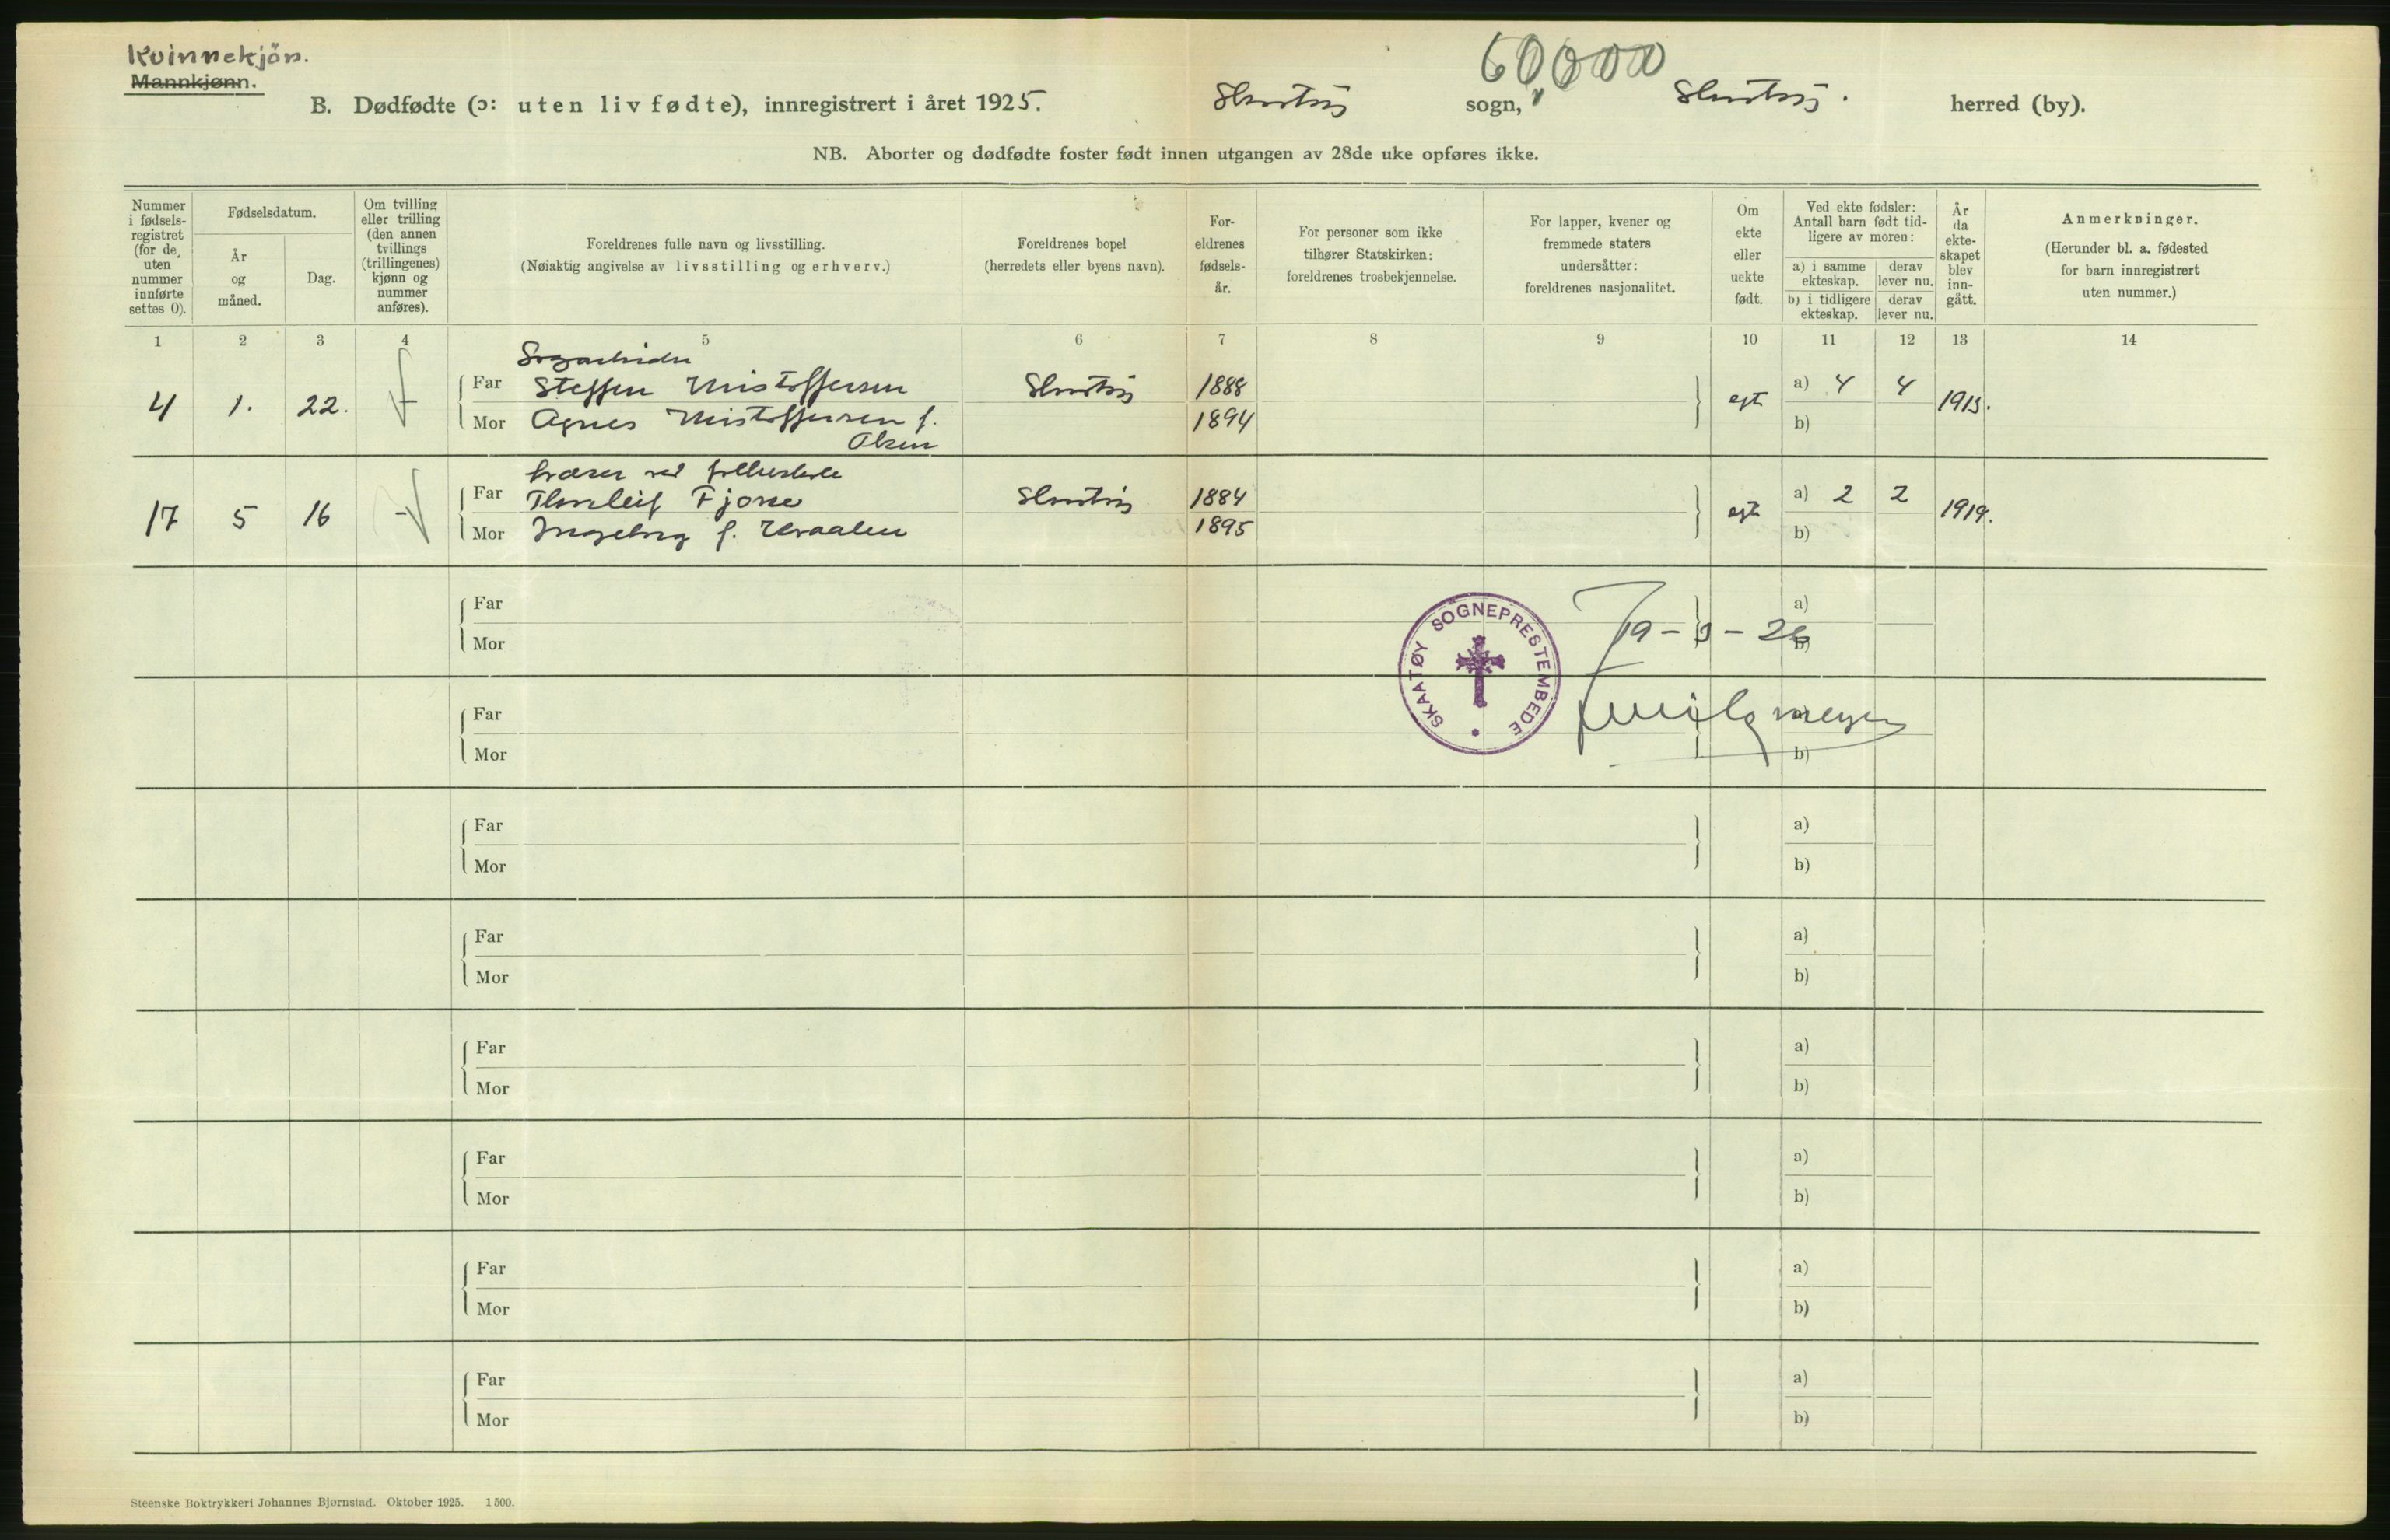 Kvinnekjön.
Mannkjønn.
60000
B. Dødfødte (ɔ: uten liv fødte), innregistrert i året 1925. Skaatøy sogn, Skaatøy. herred (by).
NB. Aborter og dødfødte foster født innen utgangen av 28de uke opføres ikke.
Nummer i fødsels-registret (for de uten nummer innførte settes 0).
Fødselsdatum.
År og måned.
Dag.
Om tvilling eller trilling (den annen tvillings (trillingenes) kjønn og nummer anføres).
Foreldrenes fulle navn og livsstilling.
(Nøiaktig angivelse av livsstilling og erhverv.)
Foreldrenes bopel
(herredets eller byens navn).
For-eldrenes fødsels-år.
For personer som ikke tilhører Statskirken: foreldrenes trosbekjennelse.
For lapper, kvener og fremmede staters undersåtter: foreldrenes nasjonalitet.
Om ekte eller uekte født.
Ved ekte fødsler: Antall barn født tid-ligere av moren:
a) i samme ekteskap. derav lever nu.
b) i tidligere ekteskap. derav lever nu.
År da ekte-skapet blev inn-gått.
Anmerkninger.
(Herunder bl. a. fødested for barn innregistrert uten nummer.)
1 2 3 4 5 6 7 8 9 10 11 12 13 14
4 1. 22.
Far Steffen Kristoffersen Skaatøy 1888 egt a) 4 4 1913.
Mor Agnes Kristoffersen f. 1894 b)
Olsen
17 5 16
Far Thorleif Fjorse Skaatøy 1884 egt a) 2 2 1919.
Mor Ingeborg f. Kraalen 1895 b)
Far a)
Mor b)
SKAATØY SOGNEPRESTEMBEDE
Far a)
Mor b)
Far a)
Mor b)
Far a)
Mor b)
Far a)
Mor b)
Far a)
Mor b)
Far a)
Mor b)
Far a)
Mor b)
Steenske Boktrykkeri Johannes Bjørnstad. Oktober 1925. 1500.